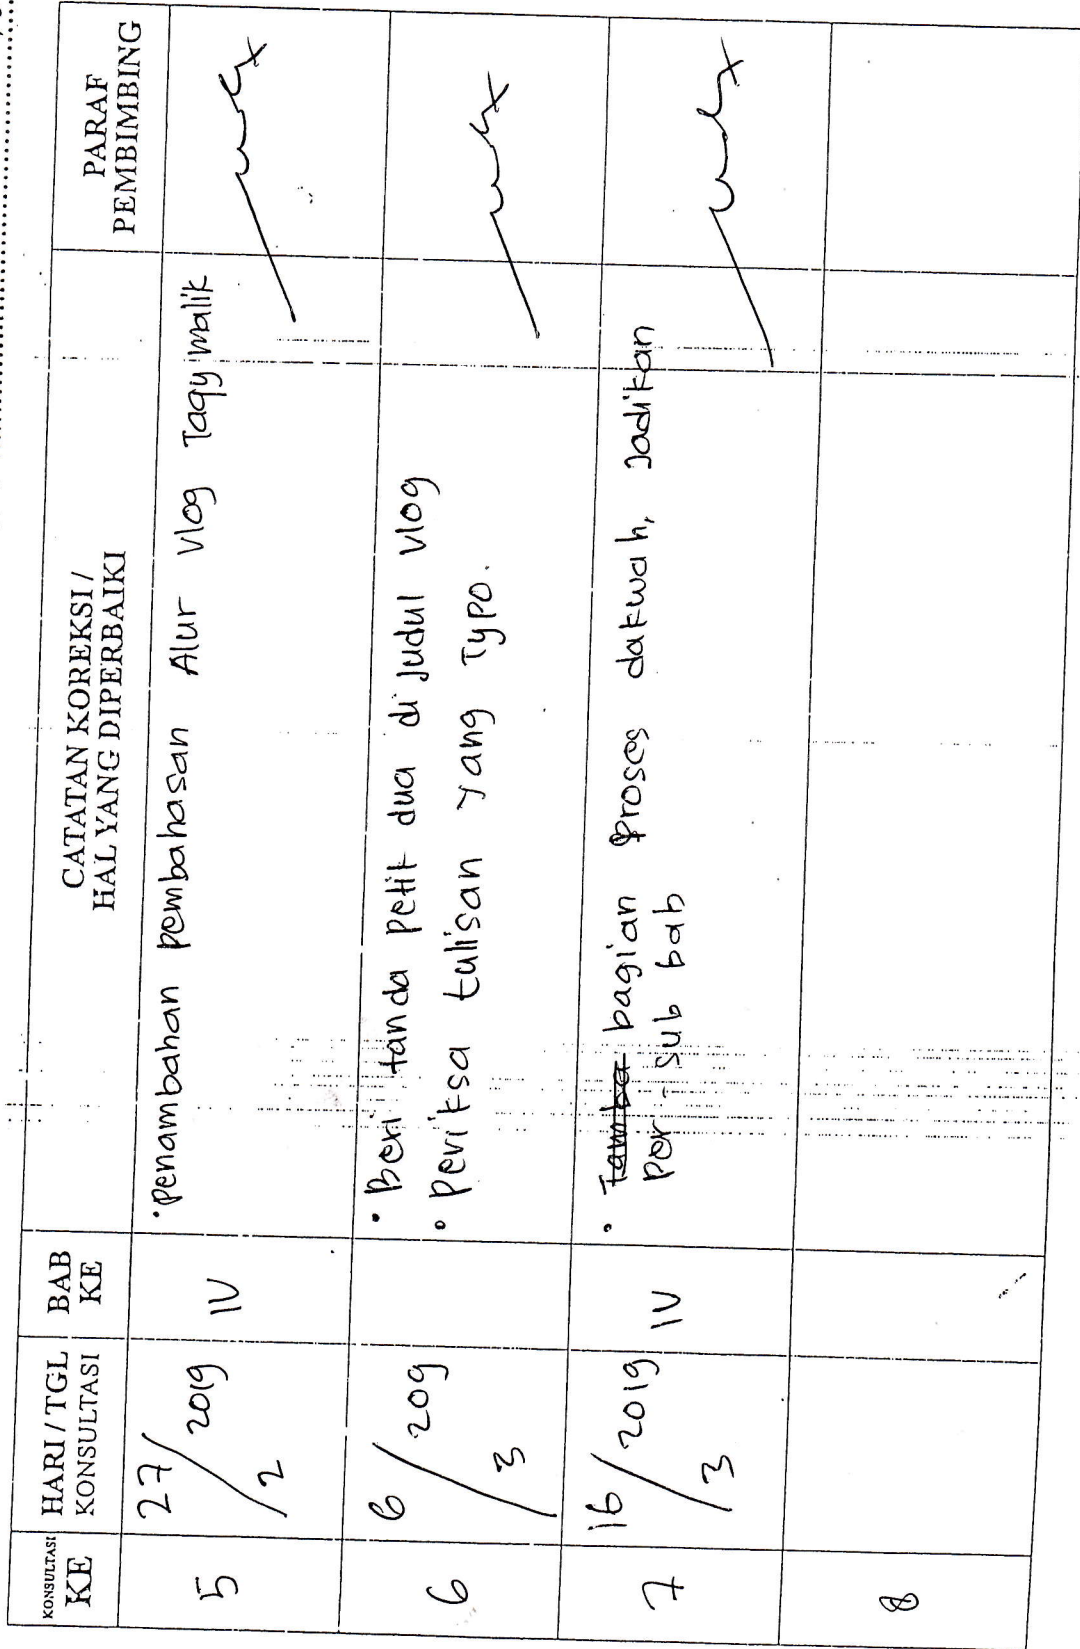 KONSULTASI KE
HARI / TGL KONSULTASI
BAB KE
CATATAN KOREKSI / HAL YANG DIPERBAIKI
PARAF PEMBIMBING
5
27/2 2019
IV
• Penambahan pembahasan Alur Vlog Taqy malik
6
6/3 209
• Beri tanda petik dua di judul vlog
• Periksa tulisan yang Typo.
7
16/3 2019
IV
• Tamba bagian Proses dakwah, Jadikan
Per-sub bab
8